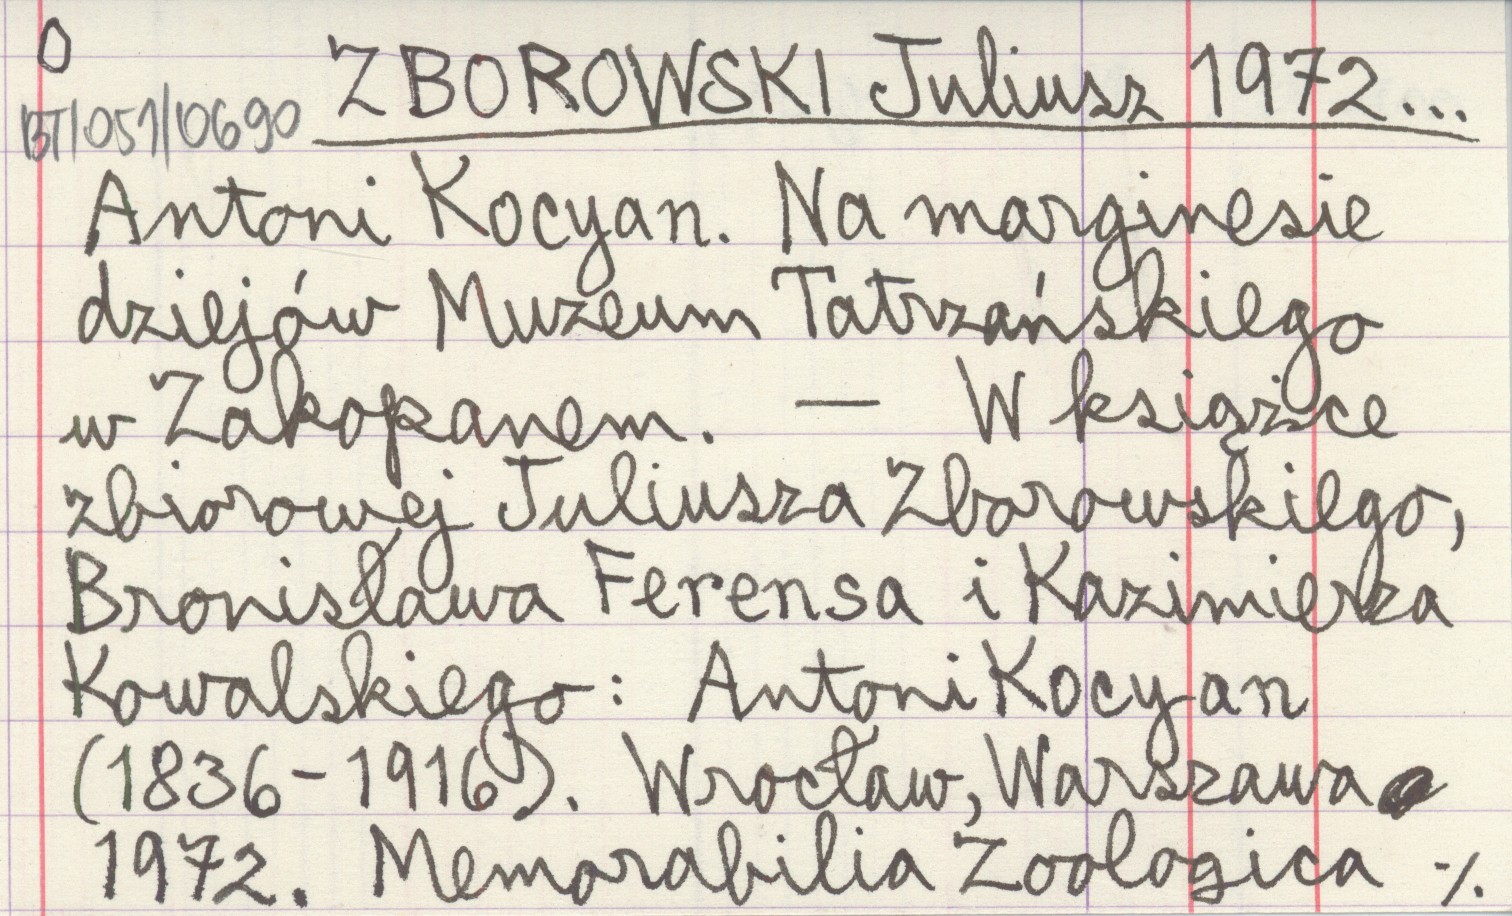 0
ZBOROWSKI Juliusz 1972...
BT/051/0690
Antoni Kocyan. Na marginesie
dziejów Muzeum Tatrzańskiego
w Zakopanem. — W książce
zbiorowej Juliusza Zborowskiego,
Bronisława Ferensa i Kazimierza
Kowalskiego: Antoni Kocyan
(1836-1916). Wrocław, Warszawa
1972. Memorabilia Zoologica ·/.